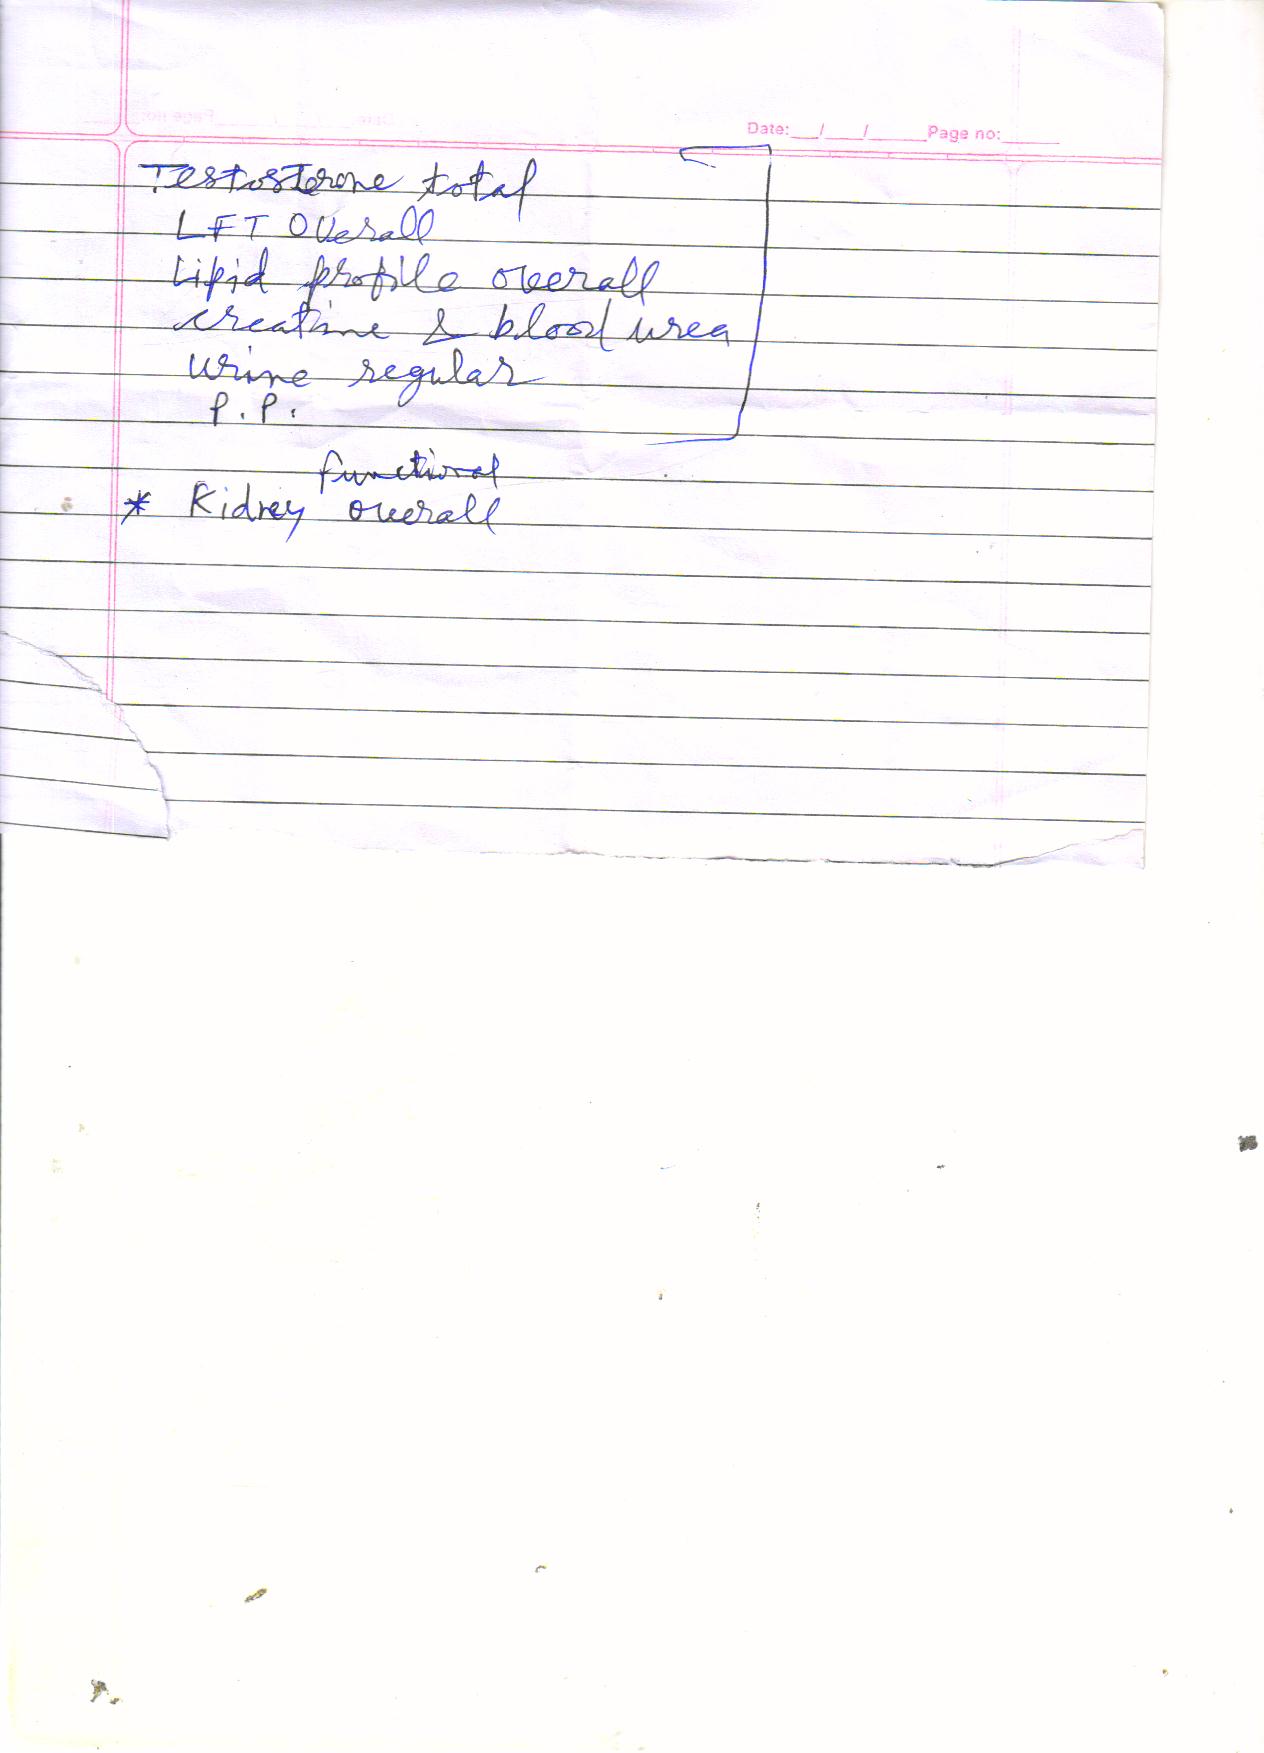 Date: __/___/_____ Page no: ______
Testosterone total
LFT Overall
Lipid profile overall
creatine & blood urea
urine regular
P.P.
functional
* Kidney overall